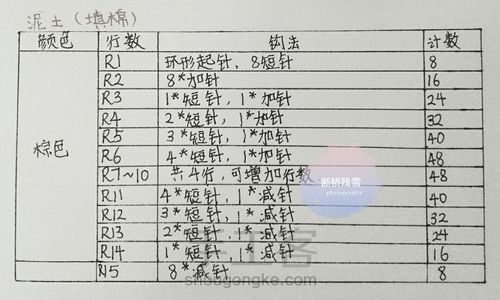 泥土(填棉)
颜色 行数 钩法 计数
R1 环形起针, 8短针 8
R2 8*加针 16
R3 1*短针, 1*加针 24
R4 2*短针, 1*加针 32
棕色 R5 3*短针, 1*加针 40
R6 4*短针, 1*加针 48
R7~10 共4行, 可增加行数 48
R11 4*短针, 1*减针 40
R12 3*短针, 1*减针 32
R13 2*短针, 1*减针 24
R14 1*短针, 1*减针 16
R15 8*减针 8
断桥残雪
photography
shougongke.com